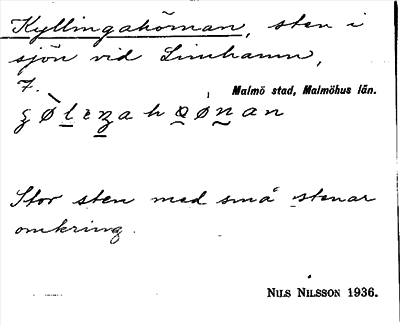 Kyllingahönan, sten i
sjön vid Limhamn,
7.
Malmö stad, Malmöhus län.
Stor sten med små stenar
omkring.
NILS NILSSON 1936.